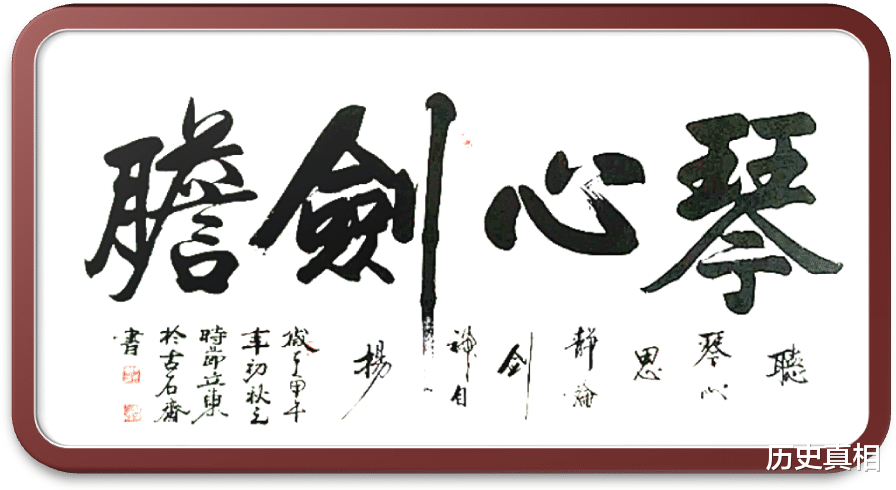 琴心劍膽
聽
琴心
思
靜論
剑
神自
揚
歲于甲午
年初秋之
時節立東
於古石齋
書
历史真相